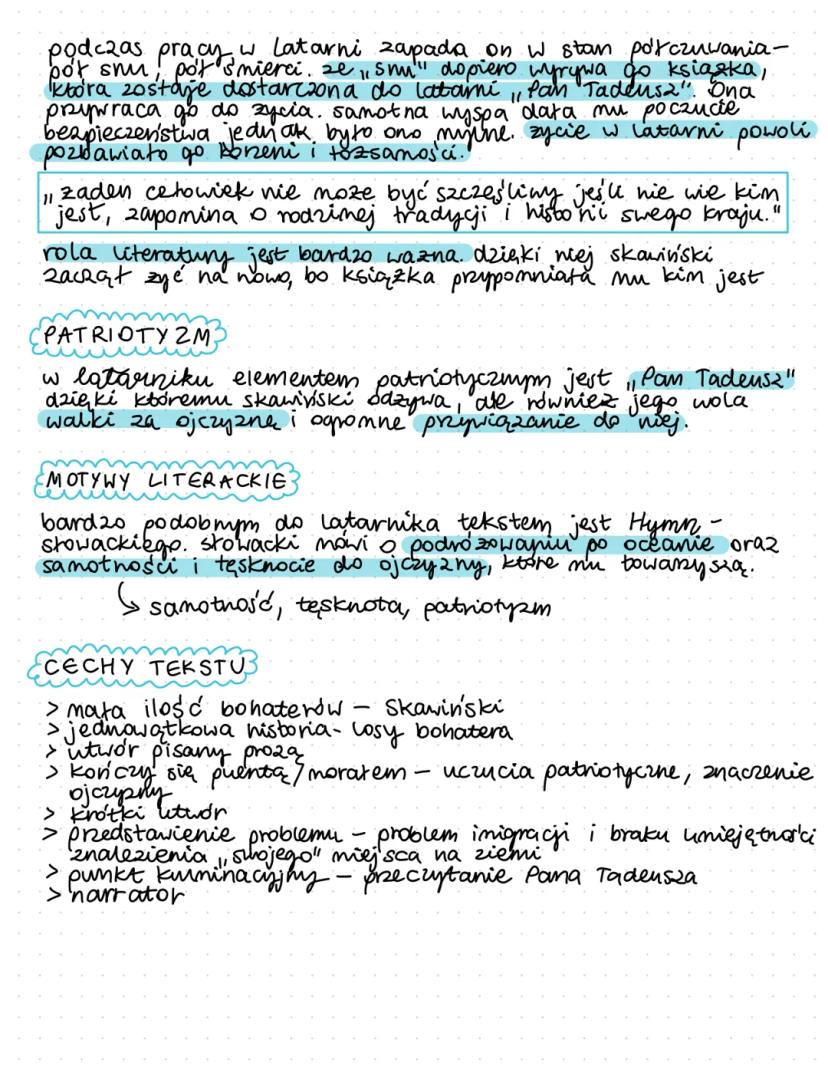 podczas pracy w latarni zapada on w stan półczuwania-
pół snu, pół śmierci. ze „snu" dopiero wyrywa go książka,
która zostaje dostarczona do latarni „Pan Tadeusz". Ona
przywraca go do życia. samotna wyspa dała mu poczucie
bezpieczeństwa jednak było ono mylne. życie w latarni powoli
pozbawiało go korzeni i tożsamości.
„żaden człowiek nie może być szczęśliwy jeśli nie wie kim
jest, zapomina o rodzinnej tradycji i historii swego kraju."
rola literatury jest bardzo ważna. dzięki niej skawiński
zaczął żyć na nowo, bo książka przypomniała mu kim jest
PATRIOTYZM
w latarniku elementem patriotycznym jest „Pan Tadeusz"
dzięki któremu skawiński odżywa, ale również jego wola
walki za ojczyznę i ogromne przywiązanie do niej.
MOTYWY LITERACKIE
bardzo podobnym do latarnika tekstem jest Hymn -
słowackiego. słowacki mówi o podróżowaniu po oceanie oraz
samotności i tęsknocie do ojczyzny, które mu towarzyszą.
↳ samotność, tęsknota, patriotyzm
CECHY TEKSTU
> mała ilość bohaterów - Skawiński
> jednowątkowa historia- losy bohatera
> utwór pisany prozą
> kończy się puentą/morałem - uczucia patriotyczne, znaczenie
ojczyzny
> krótki utwór
> przedstawienie problemu - problem imigracji i braku umiejętności
znalezienia „swojego" miejsca na ziemi
> punkt kuminacyjny - przeczytanie Pana Tadeusza
> narrator